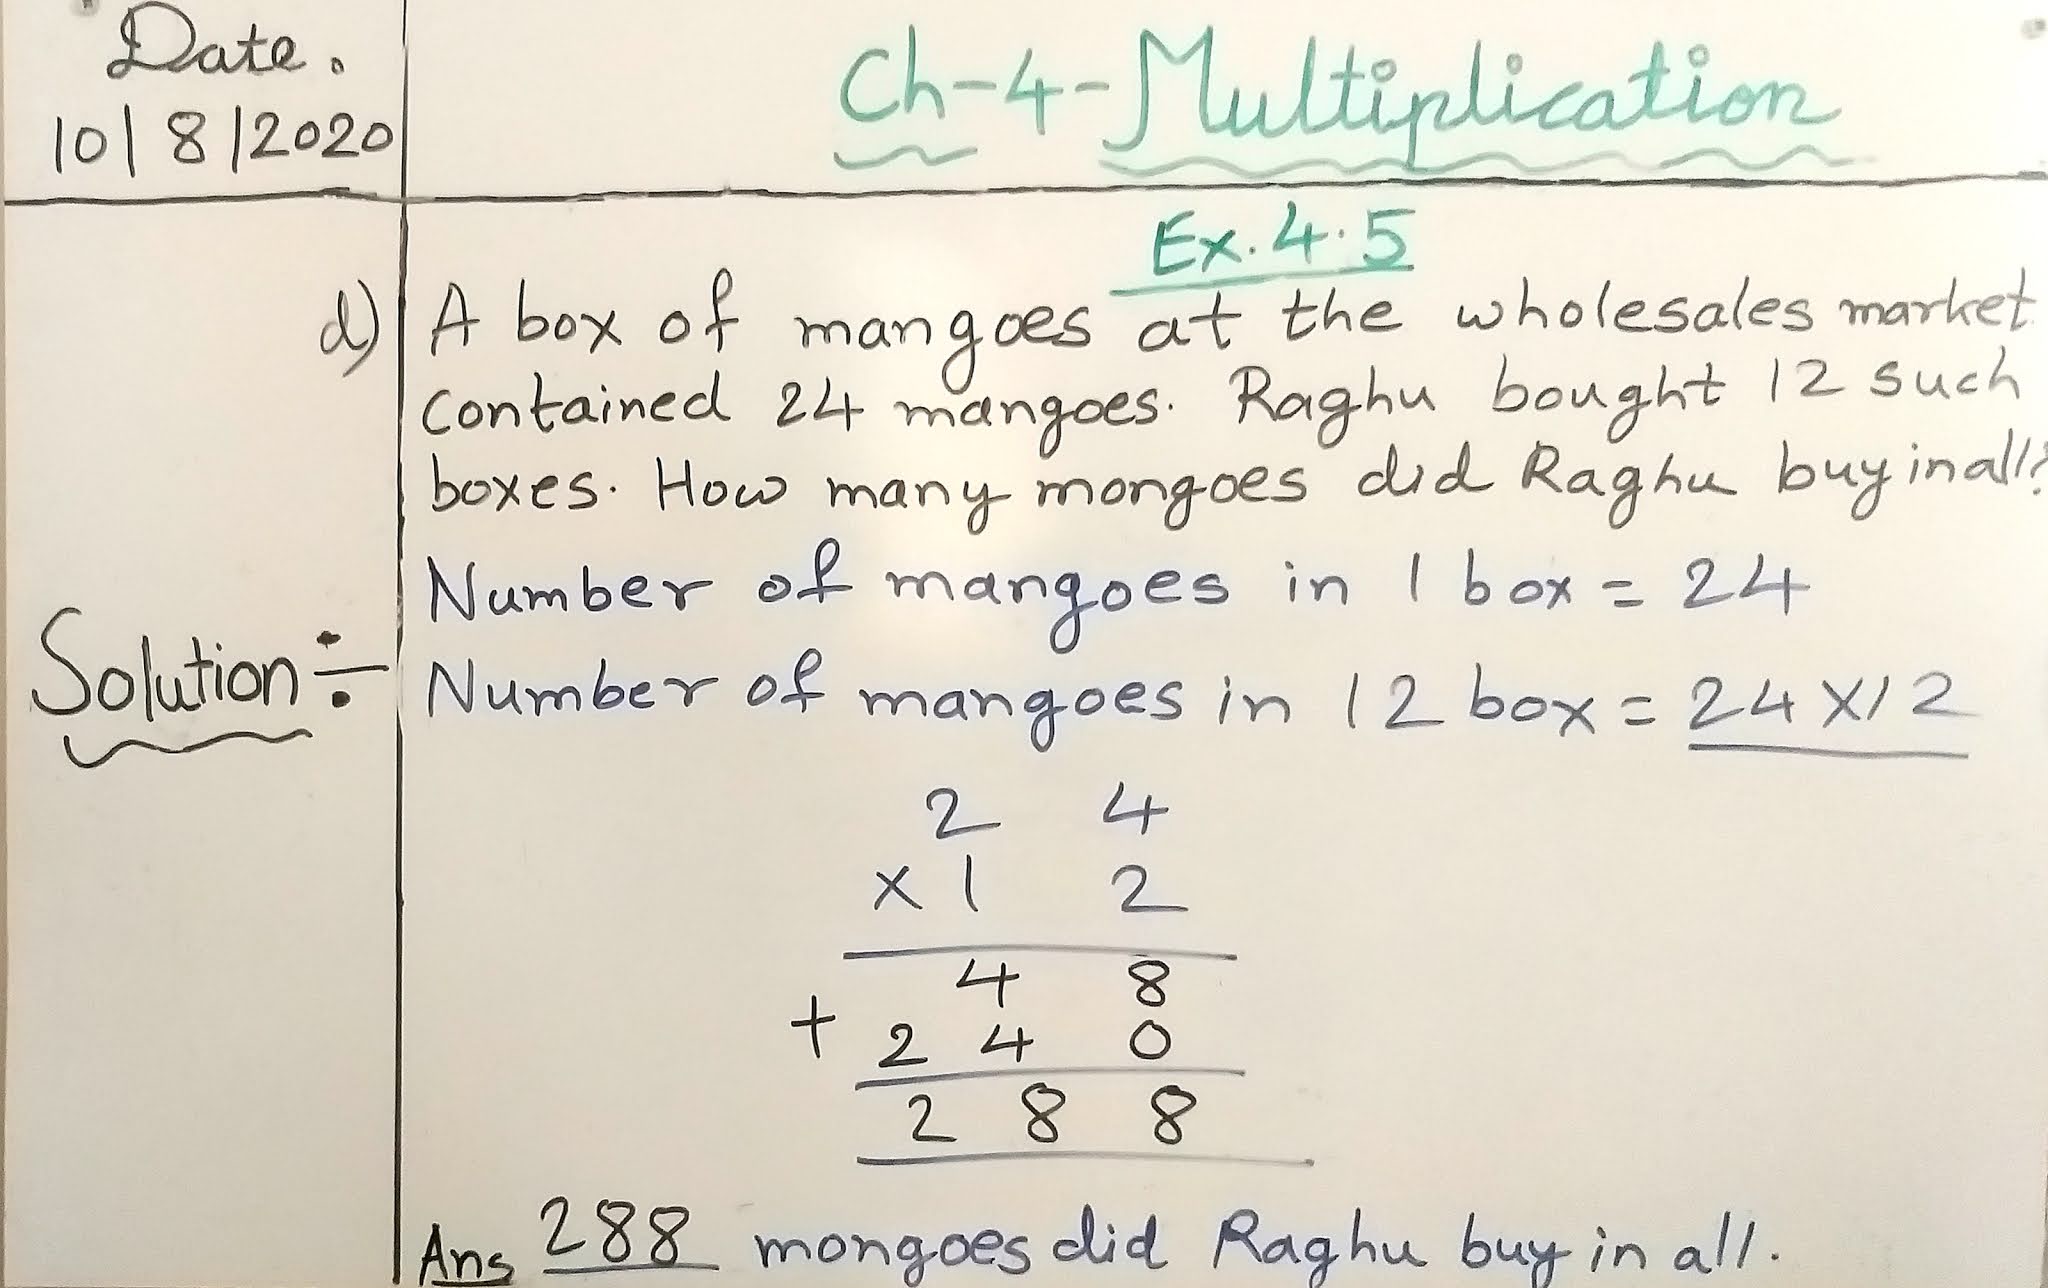 Date.
10/8/2020
Ch-4-Multiplication
Ex.4.5
d) A box of mangoes at the wholesales market
contained 24 mangoes. Raghu bought 12 such
boxes. How many mongoes did Raghu buy in all?
Number of mangoes in 1 box = 24
Solution ÷ Number of mangoes in 12 box = 24 X 12
2 4
x 1 2
4 8
+ 2 4 0
2 8 8
Ans 288 mongoes did Raghu buy in all.